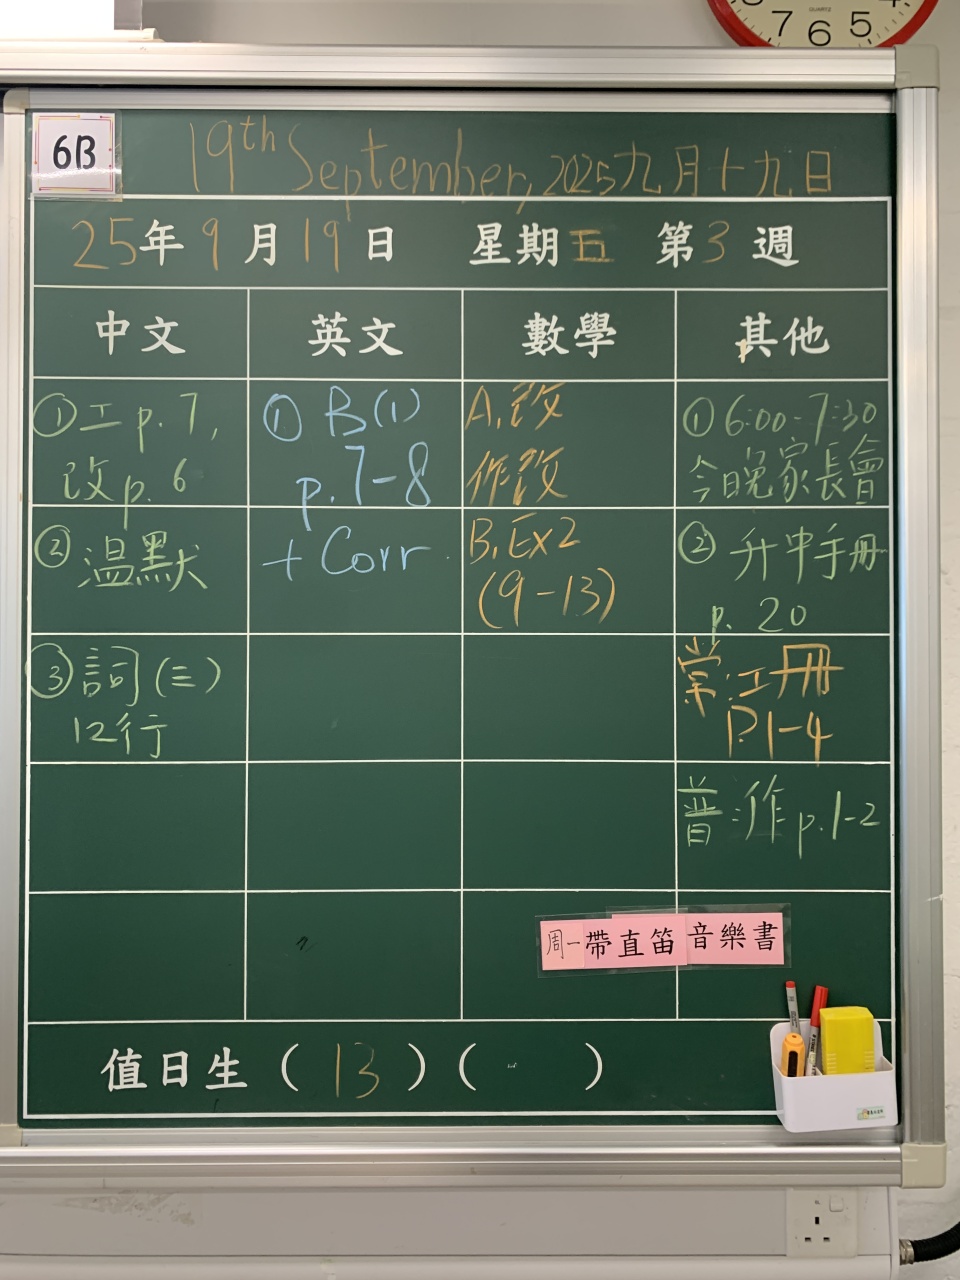 7 6 5
6B
19th September, 2025 九月十九日
25年9月19日 星期五 第3週
中文
英文
數學
其他
① 工 p. 7,
改 p. 6
② 溫默
③ 詞(三)
12行
① B(1)
p. 7-8
+ Corr.
A. 改
作改
B. Ex2
(9-13)
① 6:00-7:30
今晚家長會
② 升中手冊
p. 20
常:工冊
P.1-4
普:作 p.1-2
周一帶直笛 音樂書
值日生(13)( )